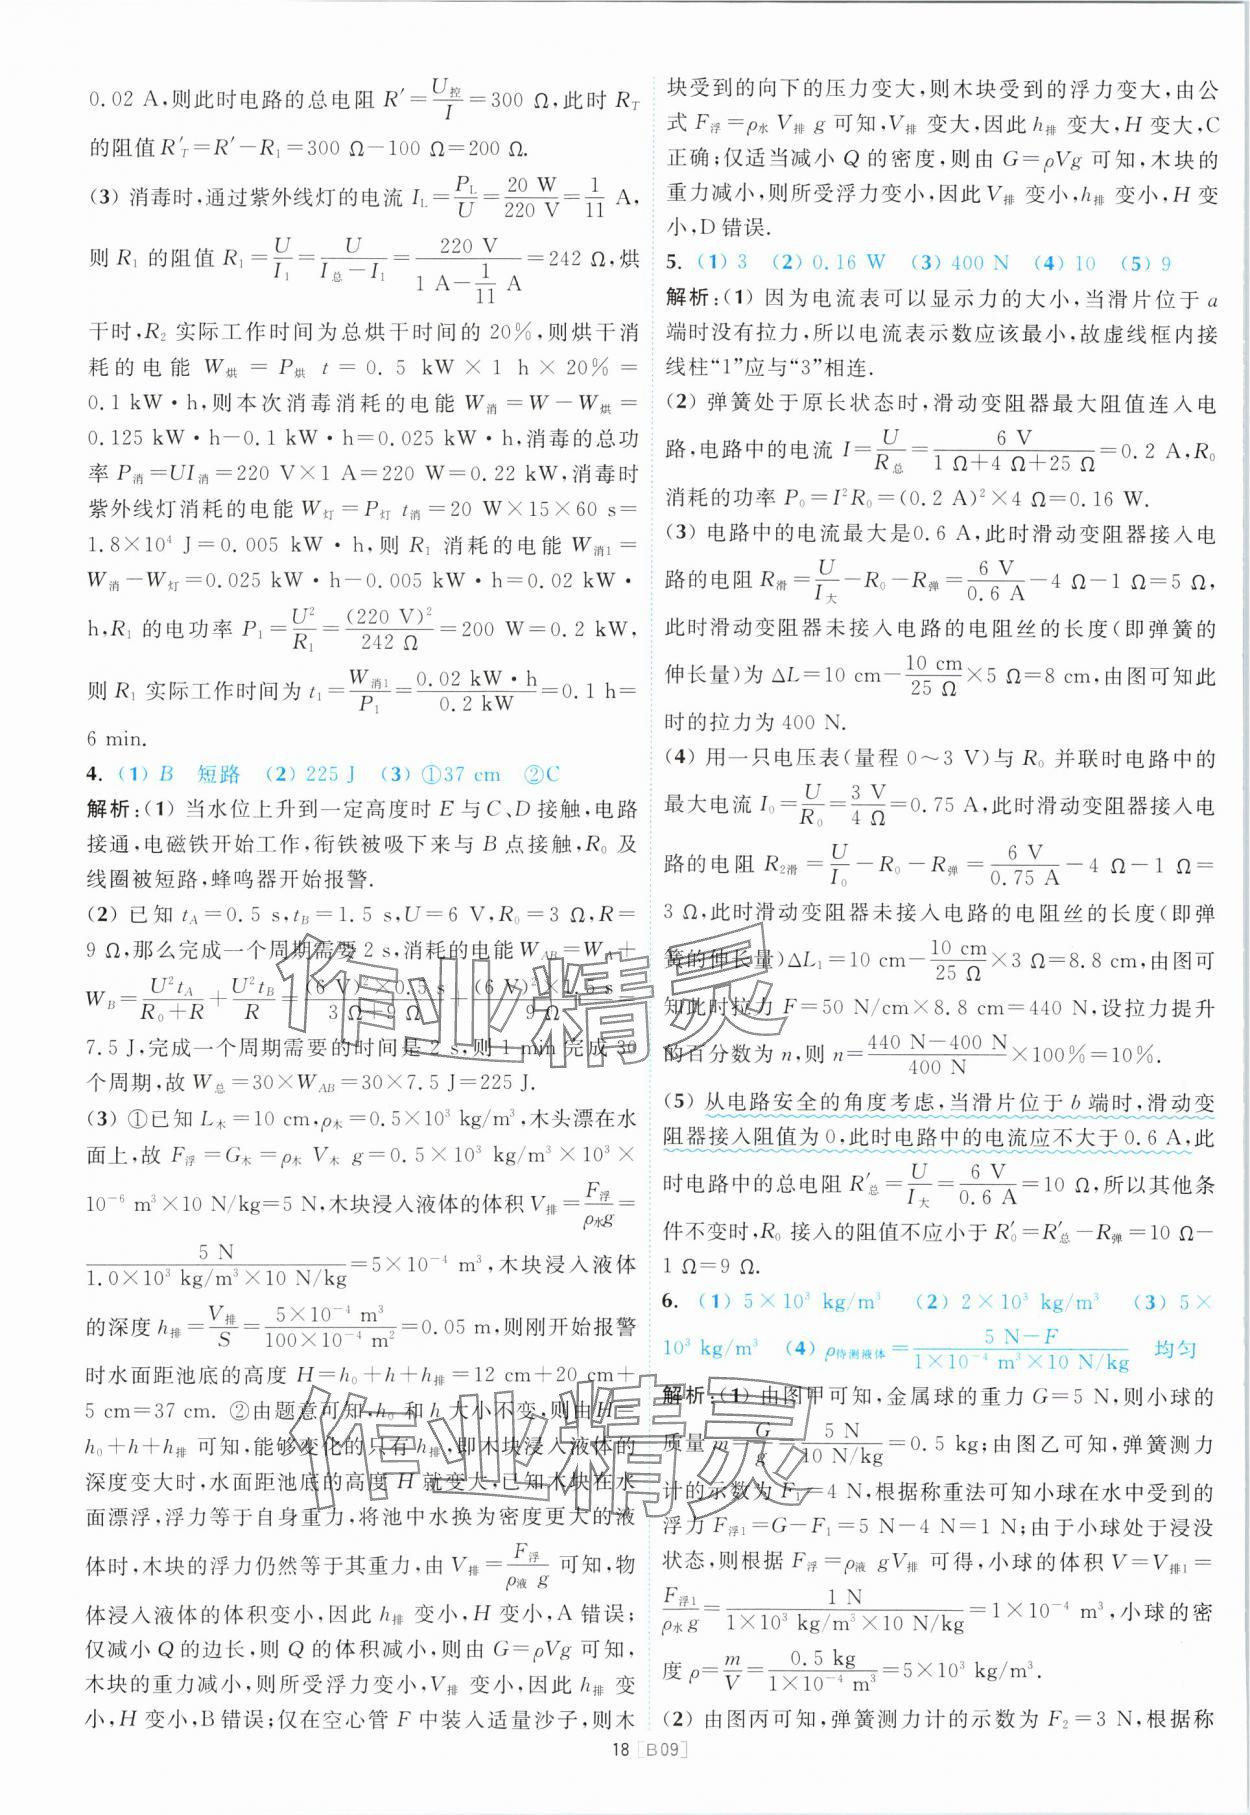 0.02 A,则此时电路的总电阻 R′=U控/I=300 Ω,此时 R_T
的阻值R′_T=R′−R₁=300 Ω−100 Ω=200 Ω.
(3) 消毒时,通过紫外线灯的电流 I_L=P_L/U=20 W/220 V=1/11 A,
则 R₁ 的阻值 R₁=U/I₁=U/(I总−I₁)=220 V/(1 A−1/11 A)=242 Ω,烘
干时,R₂ 实际工作时间为总烘干时间的 20%,则烘干消
耗的电能 W烘 = P烘 t = 0.5 kW×1 h×20% =
0.1 kW·h,则本次消毒消耗的电能 W消=W−W烘=
0.125 kW·h−0.1 kW·h=0.025 kW·h,消毒的总功
率 P消=UI消=220 V×1 A=220 W=0.22 kW,消毒时
紫外线灯消耗的电能 W灯=P灯 t消=20 W×15×60 s=
1.8×10⁴ J=0.005 kW·h,则 R₁ 消耗的电能 W消1=
W消−W灯=0.025 kW·h−0.005 kW·h=0.02 kW·
h,R₁ 的电功率 P₁=U²/R₁=(220 V)²/242 Ω=200 W=0.2 kW,
则 R₁ 实际工作时间为 t₁=W消1/P₁=0.02 kW·h/0.2 kW=0.1 h=
6 min.
4. (1) B 短路 (2) 225 J (3) ①37 cm ②C
解析:(1) 当水位上升到一定高度时 E 与 C、D 接触,电路
接通,电磁铁开始工作,衔铁被吸下来与 B 点接触,R₀ 及
线圈被短路,蜂鸣器开始报警.
(2) 已知 t_A=0.5 s,t_B=1.5 s,U=6 V,R₀=3 Ω,R=
9 Ω,那么完成一个周期需要 2 s,消耗的电能 W_AB=W_A+
W_B=U²t_A/(R₀+R)+U²t_B/R=(6 V)²×0.5 s/(3 Ω+9 Ω)+(6 V)²×1.5 s/9 Ω=
7.5 J,完成一个周期需要的时间是 2 s,则 1 min 完成 30
个周期,故 W总=30×W_AB=30×7.5 J=225 J.
(3) ①已知 L木=10 cm,ρ木=0.5×10³ kg/m³,木头漂在水
面上,故 F浮=G木=ρ木 V木 g=0.5×10³ kg/m³×10³×
10⁻⁶ m³×10 N/kg=5 N,木块浸入液体的体积 V排=F浮/ρ水g=
5 N/(1.0×10³ kg/m³×10 N/kg)=5×10⁻⁴ m³,木块浸入液体
的深度 h排=V排/S=5×10⁻⁴ m³/100×10⁻⁴ m²=0.05 m,则刚开始报警
时水面距池底的高度 H=h₀+h+h排=12 cm+20 cm+
5 cm=37 cm. ②由题意可知,h₀ 和 h 大小不变,则由H=
h₀+h+h排 可知,能够变化的只有 h排,即木块浸入液体的
深度变大时,水面距池底的高度 H 就变大,已知木块在水
面漂浮,浮力等于自身重力,将池中水换为密度更大的液
体时,木块的浮力仍然等于其重力,由 V排=F浮/ρ液 g 可知,物
体浸入液体的体积变小,因此 h排 变小,H 变小,A 错误;
仅减小 Q 的边长,则 Q 的体积减小,则由 G=ρVg 可知,
木块的重力减小,则所受浮力变小,V排 变小,因此 h排 变
小,H 变小,B错误;仅在空心管 F 中装入适量沙子,则木
块受到的向下的压力变大,则木块受到的浮力变大,由公
式 F浮=ρ水 V排 g 可知,V排 变大,因此 h排 变大,H 变大,C
正确;仅适当减小 Q 的密度,则由 G=ρVg 可知,木块的
重力减小,则所受浮力变小,因此 V排 变小,h排 变小,H 变
小,D错误.
5. (1) 3 (2) 0.16 W (3) 400 N (4) 10 (5) 9
解析:(1) 因为电流表可以显示力的大小,当滑片位于 a
端时没有拉力,所以电流表示数应该最小,故虚线框内接
线柱“1”应与“3”相连.
(2) 弹簧处于原长状态时,滑动变阻器最大阻值连入电
路,电路中的电流 I=U/R总=6 V/(1 Ω+4 Ω+25 Ω)=0.2 A,R₀
消耗的功率 P₀=I²R₀=(0.2 A)²×4 Ω=0.16 W.
(3) 电路中的电流最大是0.6 A,此时滑动变阻器接入电
路的电阻 R滑=U/I大−R₀−R弹=6 V/0.6 A−4 Ω−1 Ω=5 Ω,
此时滑动变阻器未接入电路的电阻丝的长度(即弹簧的
伸长量)为 ΔL=10 cm−10 cm/25 Ω×5 Ω=8 cm,由图可知此
时的拉力为 400 N.
(4) 用一只电压表(量程 0~3 V)与 R₀ 并联时电路中的
最大电流 I₀=U/R₀=3 V/4 Ω=0.75 A,此时滑动变阻器接入电
路的电阻 R2滑=U/I₀−R₀−R弹=6 V/0.75 A−4 Ω−1 Ω=
3 Ω,此时滑动变阻器未接入电路的电阻丝的长度(即弹
簧的伸长量)ΔL₁=10 cm−10 cm/25 Ω×3 Ω=8.8 cm,由图可
知此时拉力 F=50 N/cm×8.8 cm=440 N,设拉力提升
的百分数为 n,则 n=(440 N−400 N)/400 N×100%=10%.
(5) 从电路安全的角度考虑,当滑片位于 b 端时,滑动变
阻器接入阻值为0,此时电路中的电流应不大于0.6 A,此
时电路中的总电阻 R′总=U/I大=6 V/0.6 A=10 Ω,所以其他条
件不变时,R₀ 接入的阻值不应小于 R′₀=R′总−R弹=10 Ω−
1 Ω=9 Ω.
6. (1) 5×10³ kg/m³ (2) 2×10³ kg/m³ (3) 5×
10³ kg/m³ (4) ρ待测液体=(5 N−F)/(1×10⁻⁴ m³×10 N/kg) 均匀
解析:(1) 由图甲可知,金属球的重力 G=5 N,则小球的
质量 m=G/g=5 N/10 N/kg=0.5 kg;由图乙可知,弹簧测力
计的示数为 F₁=4 N,根据称重法可知小球在水中受到的
浮力 F浮1=G−F₁=5 N−4 N=1 N;由于小球处于浸没
状态,则根据 F浮=ρ液 gV排 可得,小球的体积 V=V排1=
F浮1/ρ水 g=1 N/(1×10³ kg/m³×10 N/kg)=1×10⁻⁴ m³,小球的密
度 ρ=m/V=0.5 kg/1×10⁻⁴ m³=5×10³ kg/m³.
(2) 由图丙可知,弹簧测力计的示数为 F₂=3 N,根据称
18 [B09]
作业精灵
作业精灵